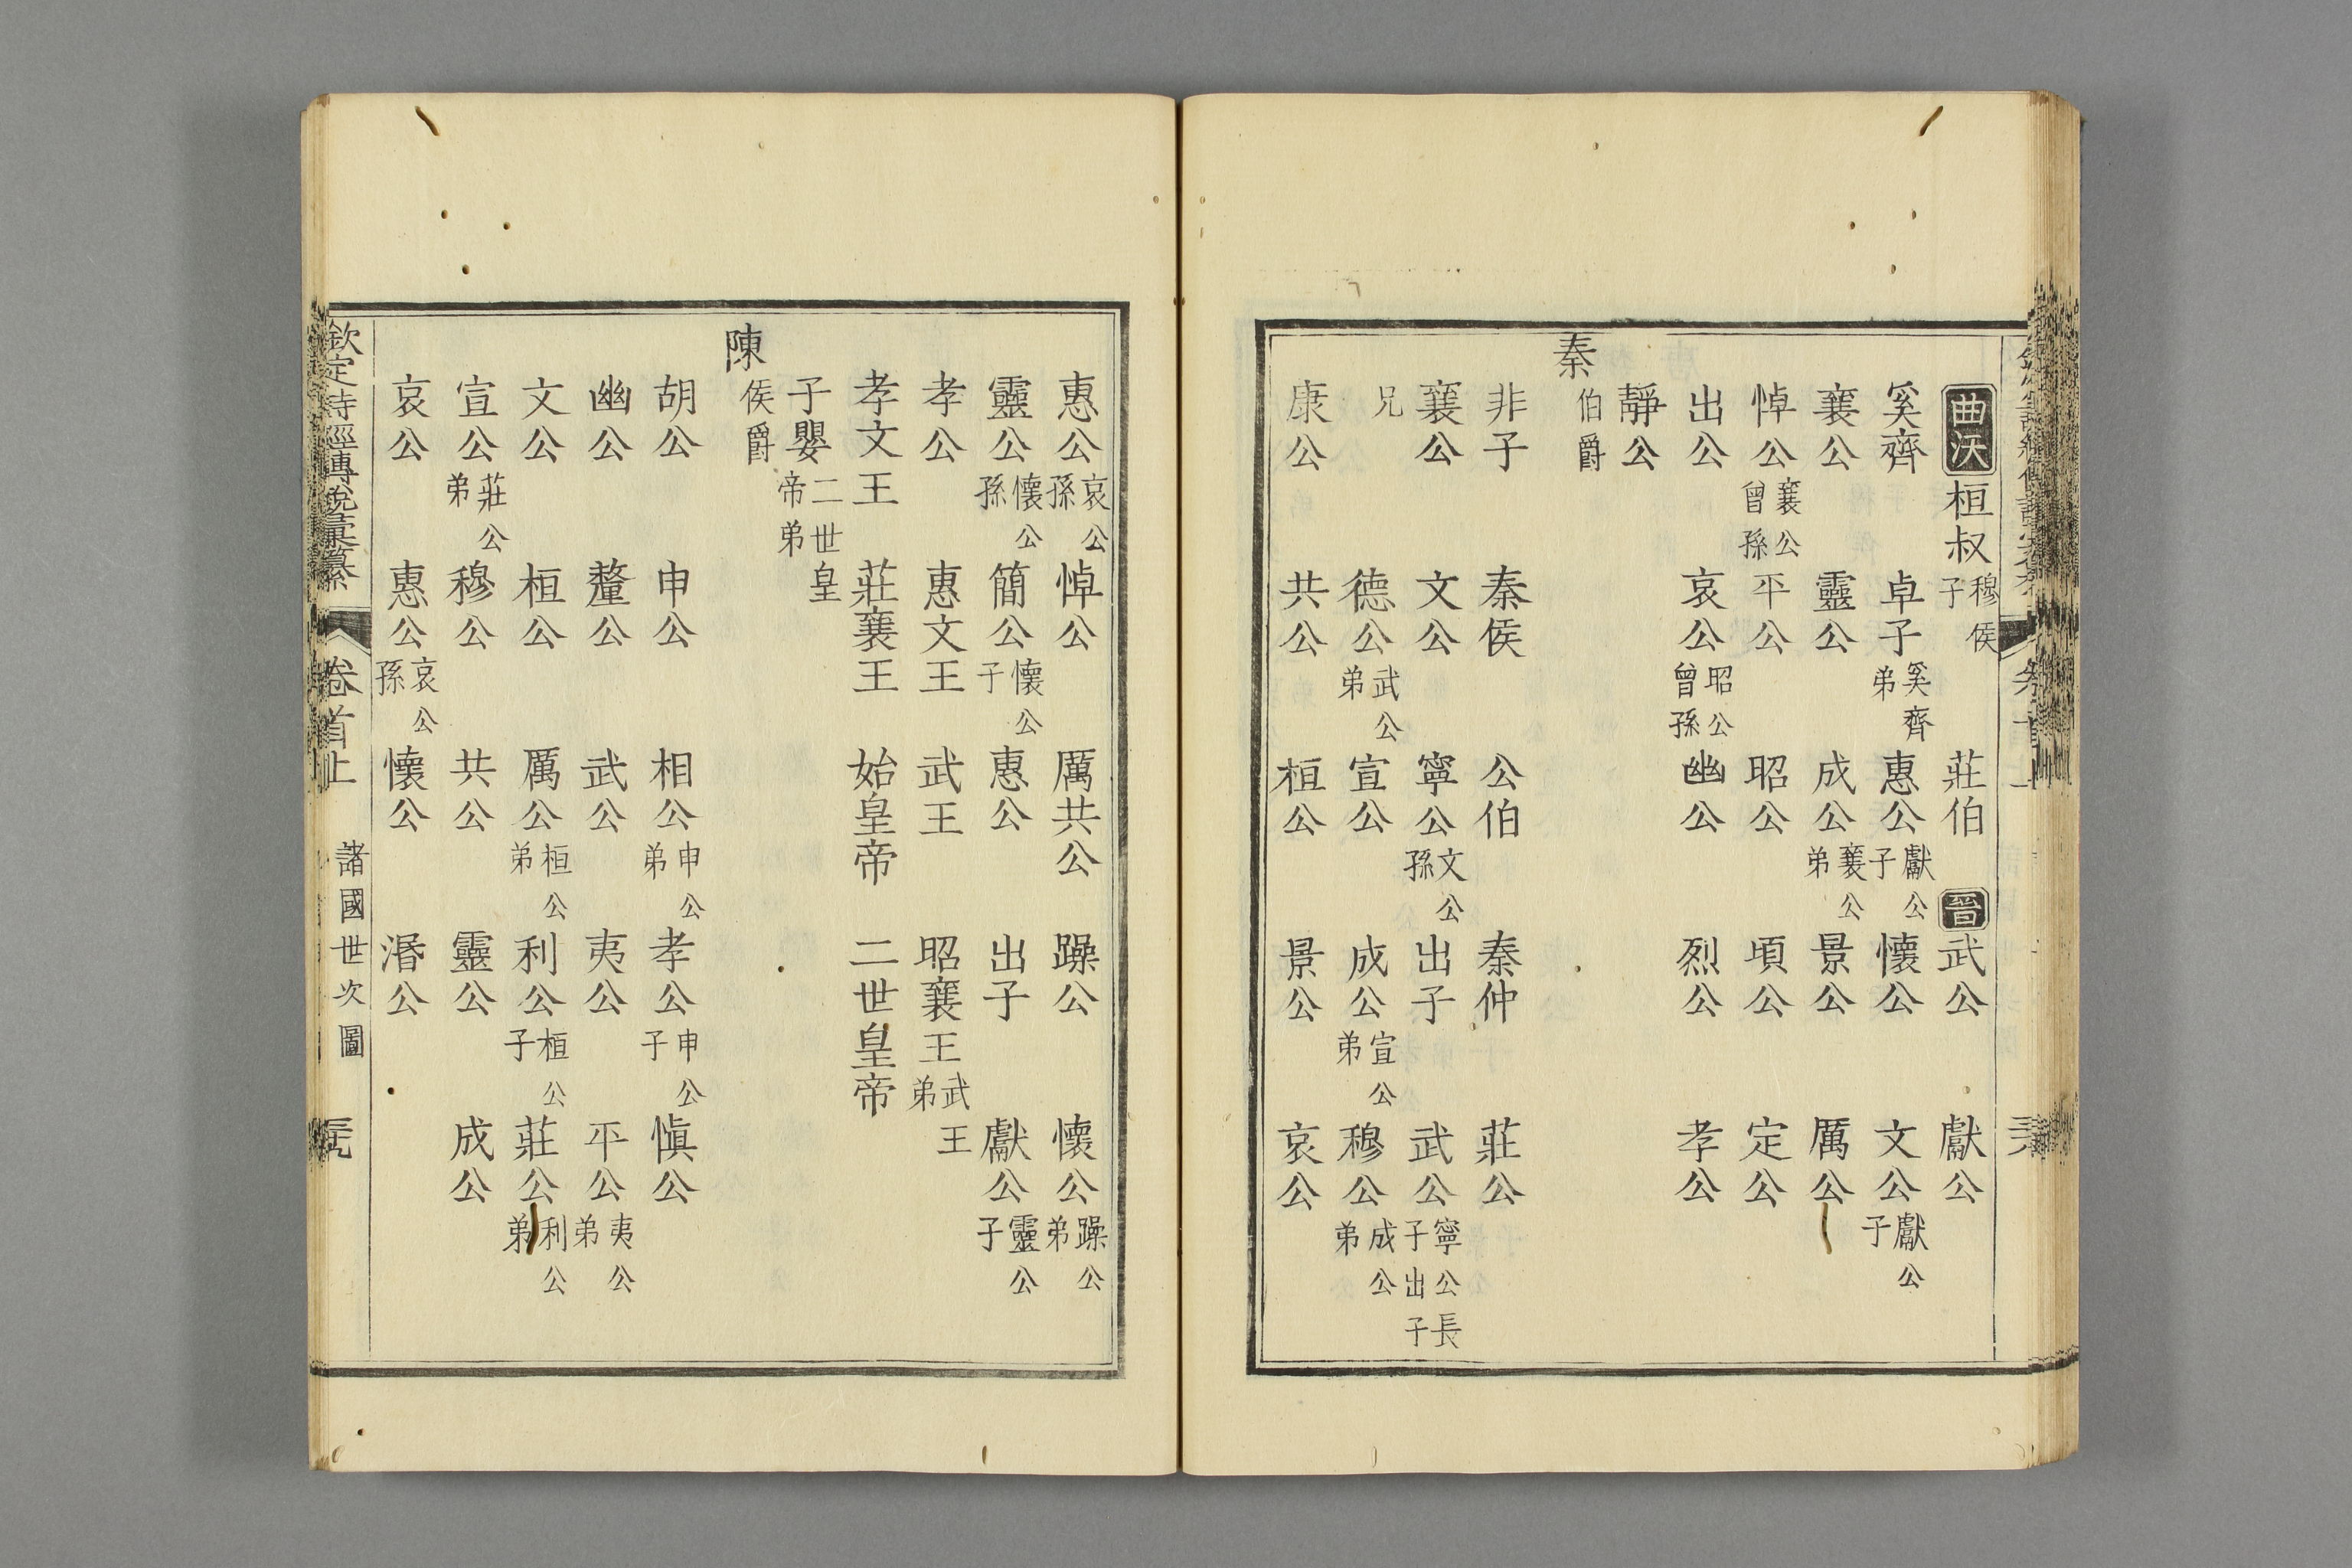 曲沃桓叔穆侯子 莊伯 晉武公 獻公
奚齊 卓子奚齊弟 惠公獻公子 懷公 文公獻公子
襄公 靈公 成公襄公弟 景公 厲公
悼公襄公曾孫 平公 昭公 頃公 定公
出公 哀公昭公曾孫 幽公 烈公 孝公
靜公
秦伯爵
非子 秦侯 公伯 秦仲 莊公
襄公 文公 寧公文公孫 出子 武公寧公長子出子
兄 德公武公弟 宣公 成公宣公弟 穆公成公弟
康公 共公 桓公 景公 哀公
惠公哀公孫 悼公 厲共公 躁公 懷公躁公弟
靈公懷公孫 簡公懷公子 惠公 出子 獻公靈公子
孝公 惠文王 武王 昭襄王武王弟
孝文王 莊襄王 始皇帝 二世皇帝
子嬰二世皇帝弟
陳侯爵
胡公 申公 相公申公弟 孝公申公子 愼公
幽公 釐公 武公 夷公 平公夷公弟
文公 桓公 厲公桓公弟 利公桓公子 莊公利公弟
宣公莊公弟 穆公 共公 靈公 成公
哀公 惠公哀公孫 懷公 湣公
欽定詩經傳說彙纂 卷首上 諸國世次圖